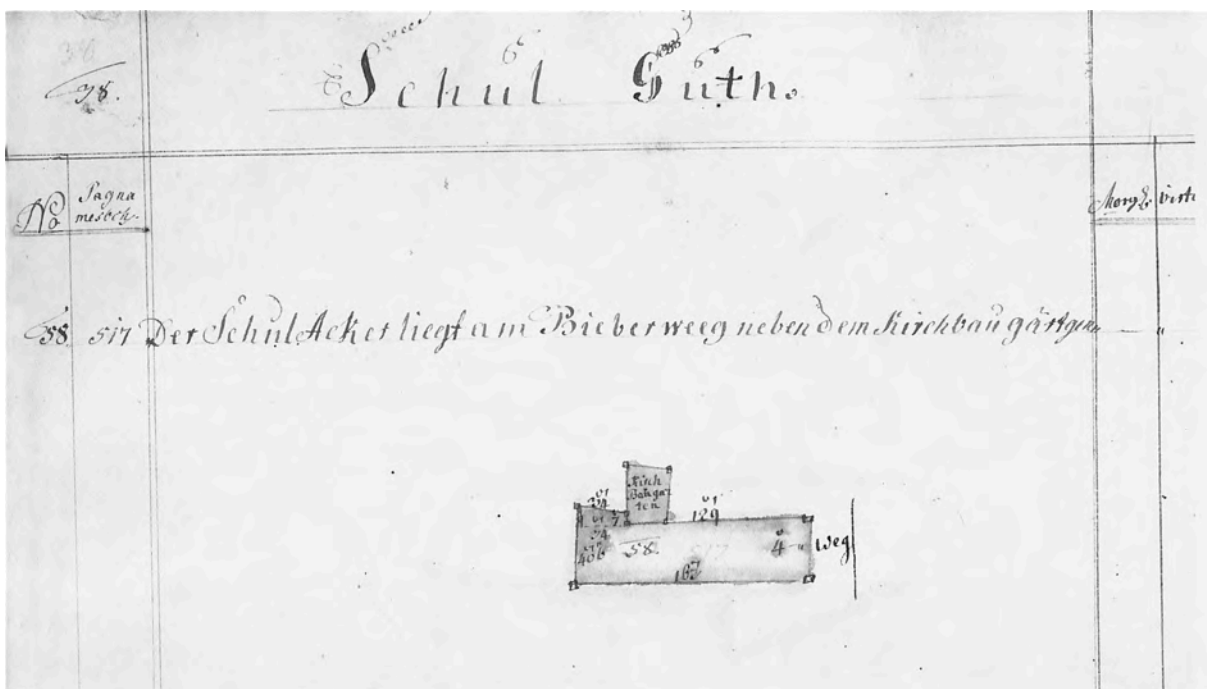 38.
Schul Guth.
No Pagna
mesbch. Morg Virtl
58. 517 Der Schul Acker liegt am Bieberweeg neben dem Kirchbaugärtgen
Kirch
Baugar
ten
34 129
7
54
406 58. 517 4 Weg
167